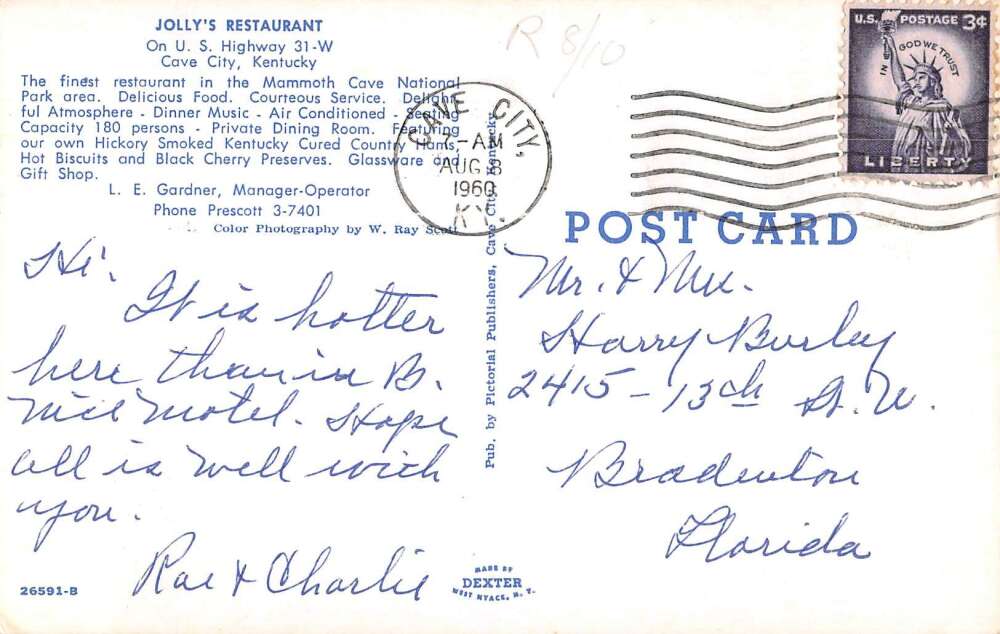 JOLLY'S RESTAURANT
On U. S. Highway 31-W
Cave City, Kentucky
The finest restaurant in the Mammoth Cave National
Park area. Delicious Food. Courteous Service. Delight-
ful Atmosphere - Dinner Music - Air Conditioned - Seating
Capacity 180 persons - Private Dining Room. Featuring
our own Hickory Smoked Kentucky Cured Country Hams,
Hot Biscuits and Black Cherry Preserves. Glassware and
Gift Shop.
L. E. Gardner, Manager-Operator
Phone Prescott 3-7401
Color Photography by W. Ray Scott
Hi.
It is hotter
here than in B.
nice motel. Hope
all is well with
you.
Rae & Charlie
26591-B
MADE BY
DEXTER
WEST NYACK, N. Y.
Pub. by Pictorial Publishers, Cave City, Kentucky
R 8/10
CAVE CITY,
7-AM
AUG 8
1960
KY.
U.S. POSTAGE 3¢
IN GOD WE TRUST
LIBERTY
POST CARD
Mr. & Mrs.
Harry Burley
2415 - 13th St. W.
Bradenton
Florida